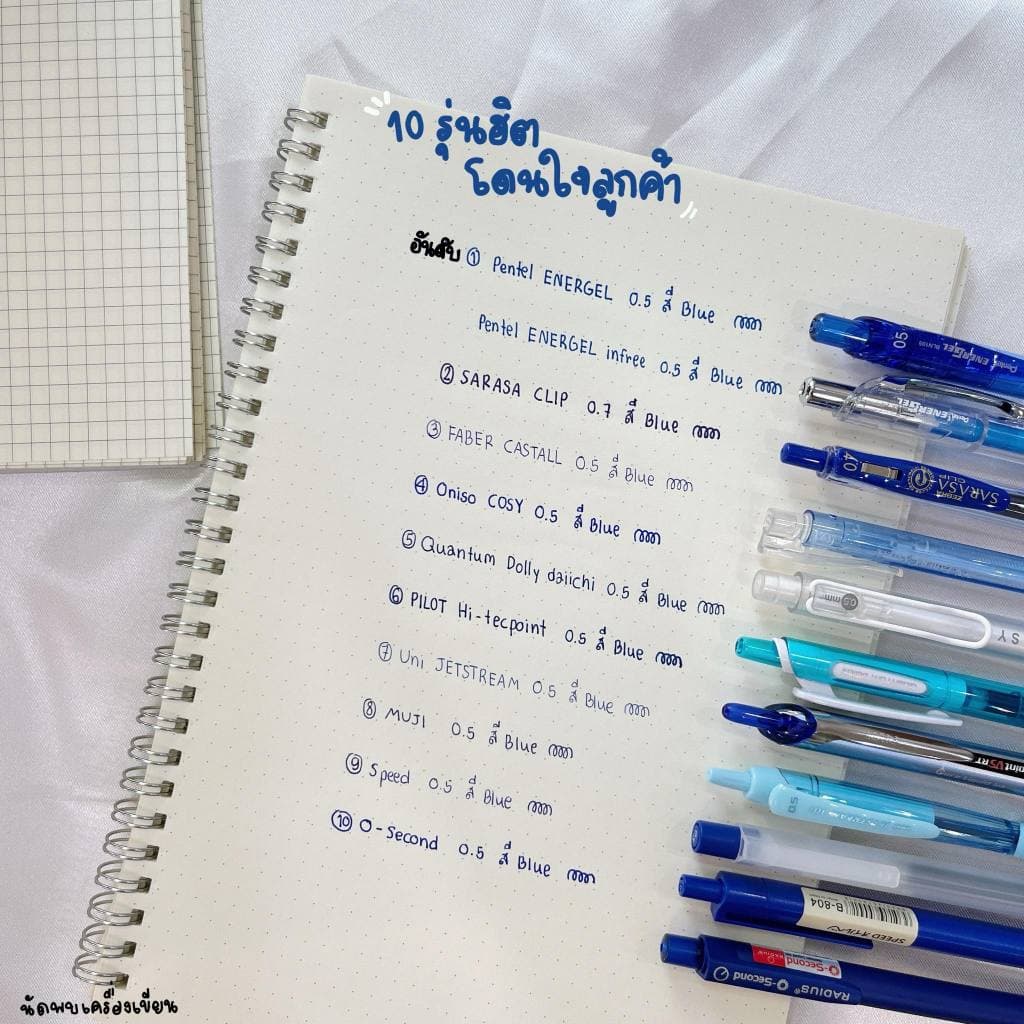 10 รุ่นฮิต
โดนใจลูกค้า
อันดับ ① Pentel ENERGEL 0.5 สี Blue
Pentel ENERGEL infree 0.5 สี Blue
② SARASA CLIP 0.7 สี Blue
③ FABER CASTALL 0.5 สี Blue
④ Oniso COSY 0.5 สี Blue
⑤ Quantum Dolly daiichi 0.5 สี Blue
⑥ PILOT Hi-tecpoint 0.5 สี Blue
⑦ Uni JETSTREAM 0.5 สี Blue
⑧ MUJI 0.5 สี Blue
⑨ Speed 0.5 สี Blue
⑩ O-Second 0.5 สี Blue
05 Pentel ENERGEL BLN105
Pentel ENERGEL
40 ZEBRA SARASA CLIP
0.5 mm SY
point V5 RT
05
B-804 SPEED
RADIUS O-Second
O-Second
นัดพบเครื่องเขียน